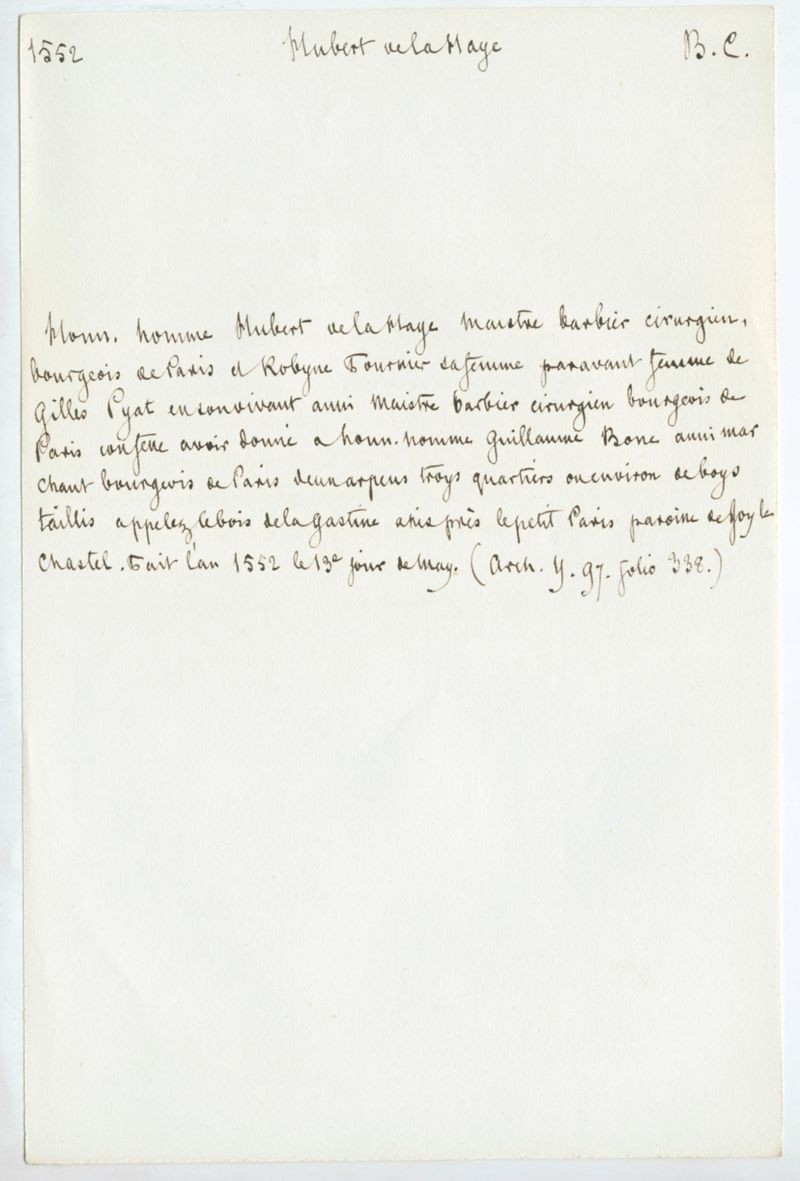 1552 Hubert de la Haye B. C.
Honn. homme Hubert de la Haye maistre barbier cirurgien,
bourgeois de Paris et Robyne Fournier sa femme paravant femme de
Gilles Pyat en son vivant aussi maistre barbier cirurgien bourgeois de
Paris confesse avoir donné a honn. homme Guillaume Bone aussi mar
chant bourgeois de Paris deun arpens troys quartiers ou environ de boys
taillis appelez le bois de la Gastine assis près le petit Paris paroisse de Joy le
Chastel. Fait l'an 1552 le 13e jour de May. (Arch. Y. 97. folio 338.)